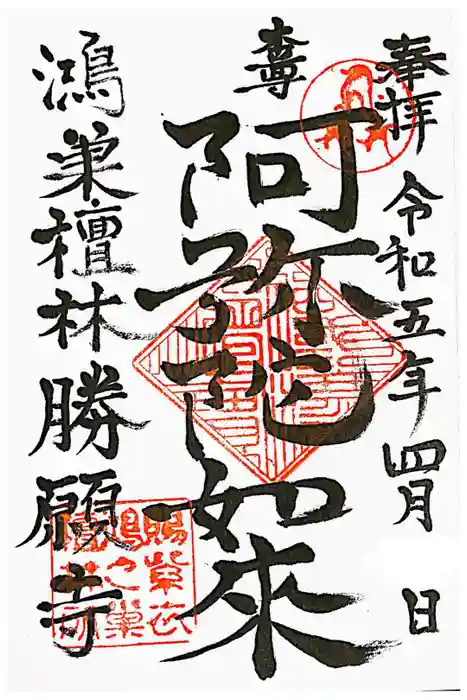 奉拝
令和五年四月 日
本尊
阿弥陀如来
鴻巣檀林勝願寺